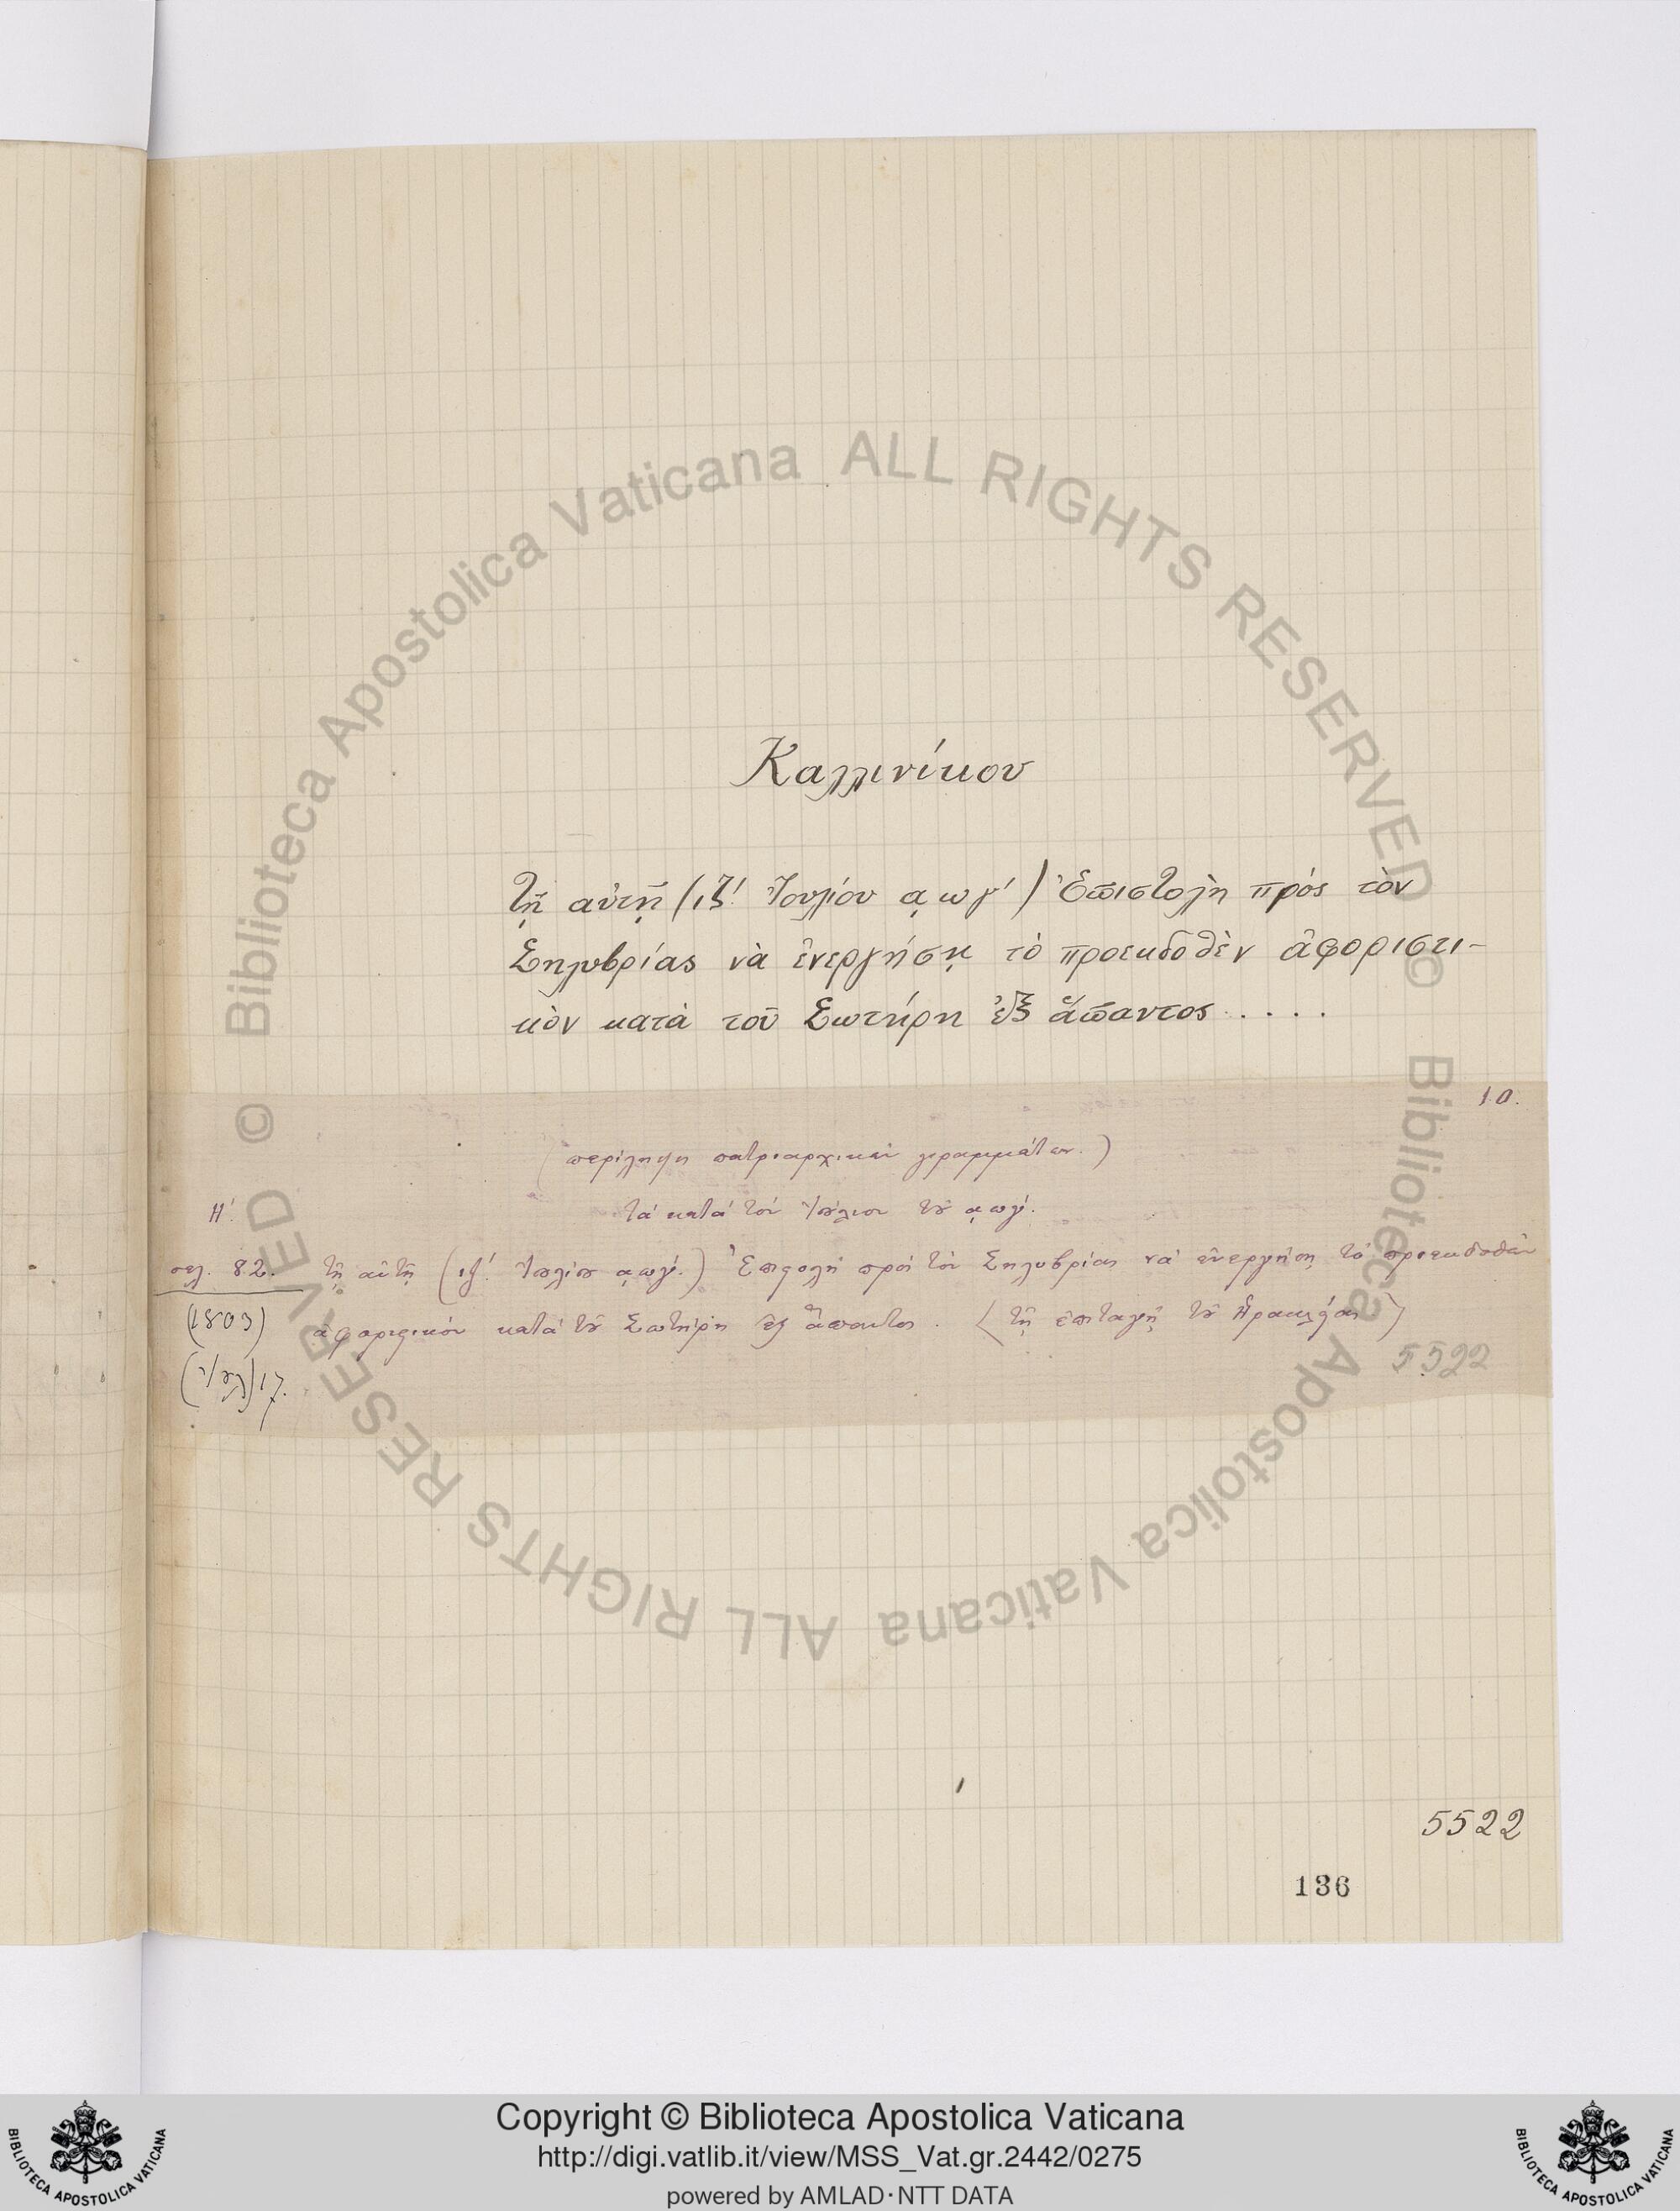 Καλλινίκου
Τῇ αὐτῇ (ιζ! Ἰουλίου αωγ') Ἐπιστολὴ πρὸς τὸν
Σηλυβρίας νὰ ἐνεργήσῃ τὸ προεκδοθὲν ἀφοριστι-
κὸν κατὰ τοῦ Σωτήρη ἐξ ἅπαντος.....
10.
(περίληψη πατριαρχικῶν γραμμάτων.)
Η'. τὰ κατὰ τὸν Ἰούλιον τοῦ αωγ'.
σελ. 82. τῇ αὐτῇ (ιζ! Ἰουλίου αωγ'.) Ἐπιστολὴ πρὸς τὸν Σηλυβρίας νὰ ἐνεργήσῃ τὸ προεκδοθὲν
(1803) ἀφοριστικὸν κατὰ τοῦ Σωτήρη ἐξ ἅπαντος. (τῇ ἐπιταγῇ τοῦ Ἡρακλείας)
(Ἰουλ) 17.
5522
5522
136
Biblioteca Apostolica Vaticana ALL RIGHTS RESERVED ©
Biblioteca Apostolica Vaticana ALL RIGHTS RESERVED ©
Copyright © Biblioteca Apostolica Vaticana
http://digi.vatlib.it/view/MSS_Vat.gr.2442/0275
powered by AMLAD·NTT DATA
BIBLIOTECA APOSTOLICA VATICANA
BIBLIOTECA APOSTOLICA VATICANA